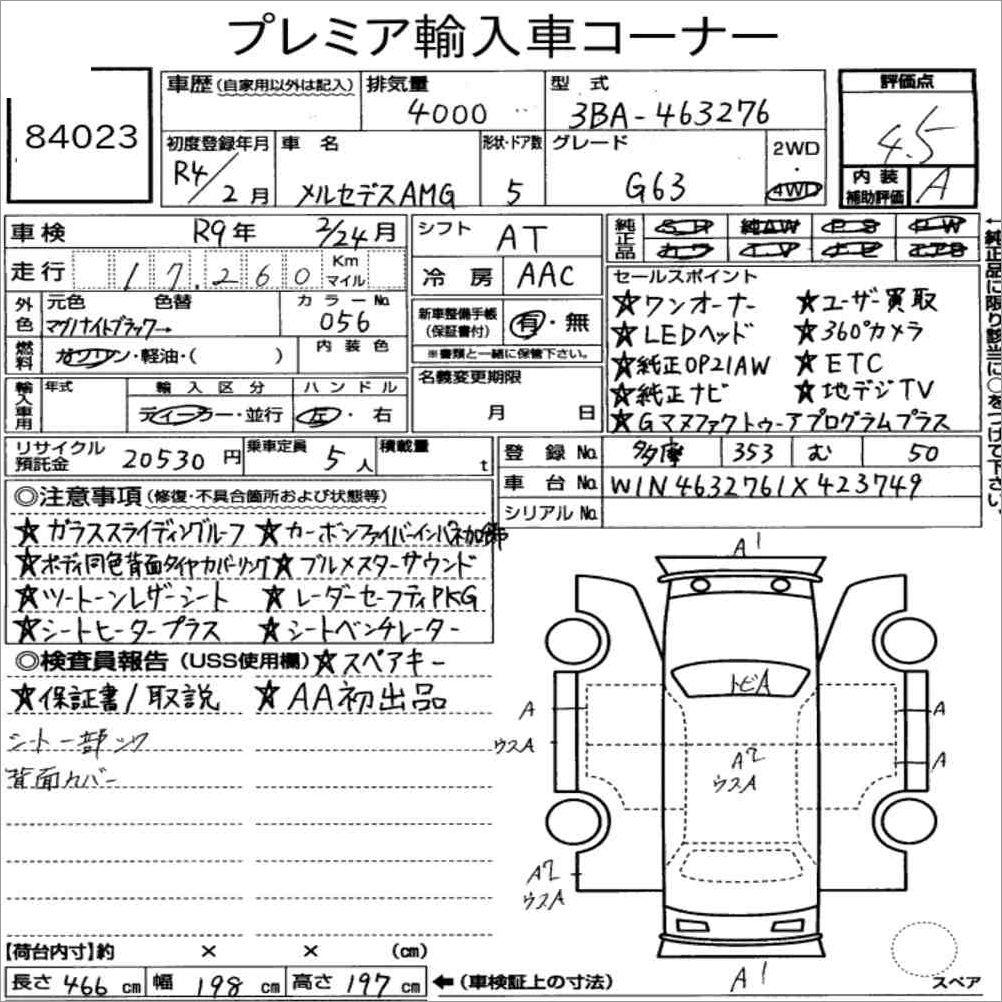 プレミア輸入車コーナー
84023
車歴 (自家用以外は記入)
排気量
4000
型式
3BA-463276
評価点
4.5
初度登録年月
R4/2月
車名
メルセデスAMG
形状・ドア数
5
グレード
G63
2WD
・
4WD
内装
補助評価
A
車検
R9年 2/24月
シフト
AT
純正品
SR 純AW PS PW
カワ TV ナビ エアB
走行
17,260
Km
マイル
冷房
AAC
セールスポイント
★ワンオーナー ★ユーザー買取
★LEDヘッド ★360°カメラ
★純正OP21AW ★ETC
★純正ナビ ★地デジTV
★Gマヌファクトゥーアプログラムプラス
外色
元色 色替
マグノナイトブラック→
カラーNo.
056
新車整備手帳
(保証書付)
有・無
※書類と一緒に保管下さい。
燃料
ガソリン・軽油・( )
内装色
輸入車用
年式
輸入区分
ディーラー・並行
ハンドル
左・右
名義変更期限
月 日
←純正品に限り該当に○をつけて下さい。
リサイクル預託金
20530円
乗車定員
5人
積載量
t
登録No.
多摩 353 む 50
車台No.
W1N4632761X423749
シリアルNo.
◎注意事項 (修復・不具合箇所および状態等)
★ガラススライディングルーフ ★カーボンファイバーインパネ加飾
★ボディ同色背面タイヤカバーリング ★ブルメスターサウンド
★ツートーンレザーシート ★レーダーセーフティPKG
★シートヒータープラス ★シートベンチレーター
◎検査員報告 (USS使用欄) ★スペアキー
★保証書/取説 ★AA初出品
シート一部シワ
背面カバー
A1
トビA
A
ウスA
A
A
A2
ウスA
A2
ウスA
A1
スペア
【荷台内寸】約 × × (cm)
長さ 466 cm 幅 198 cm 高さ 197 cm ←(車検証上の寸法)